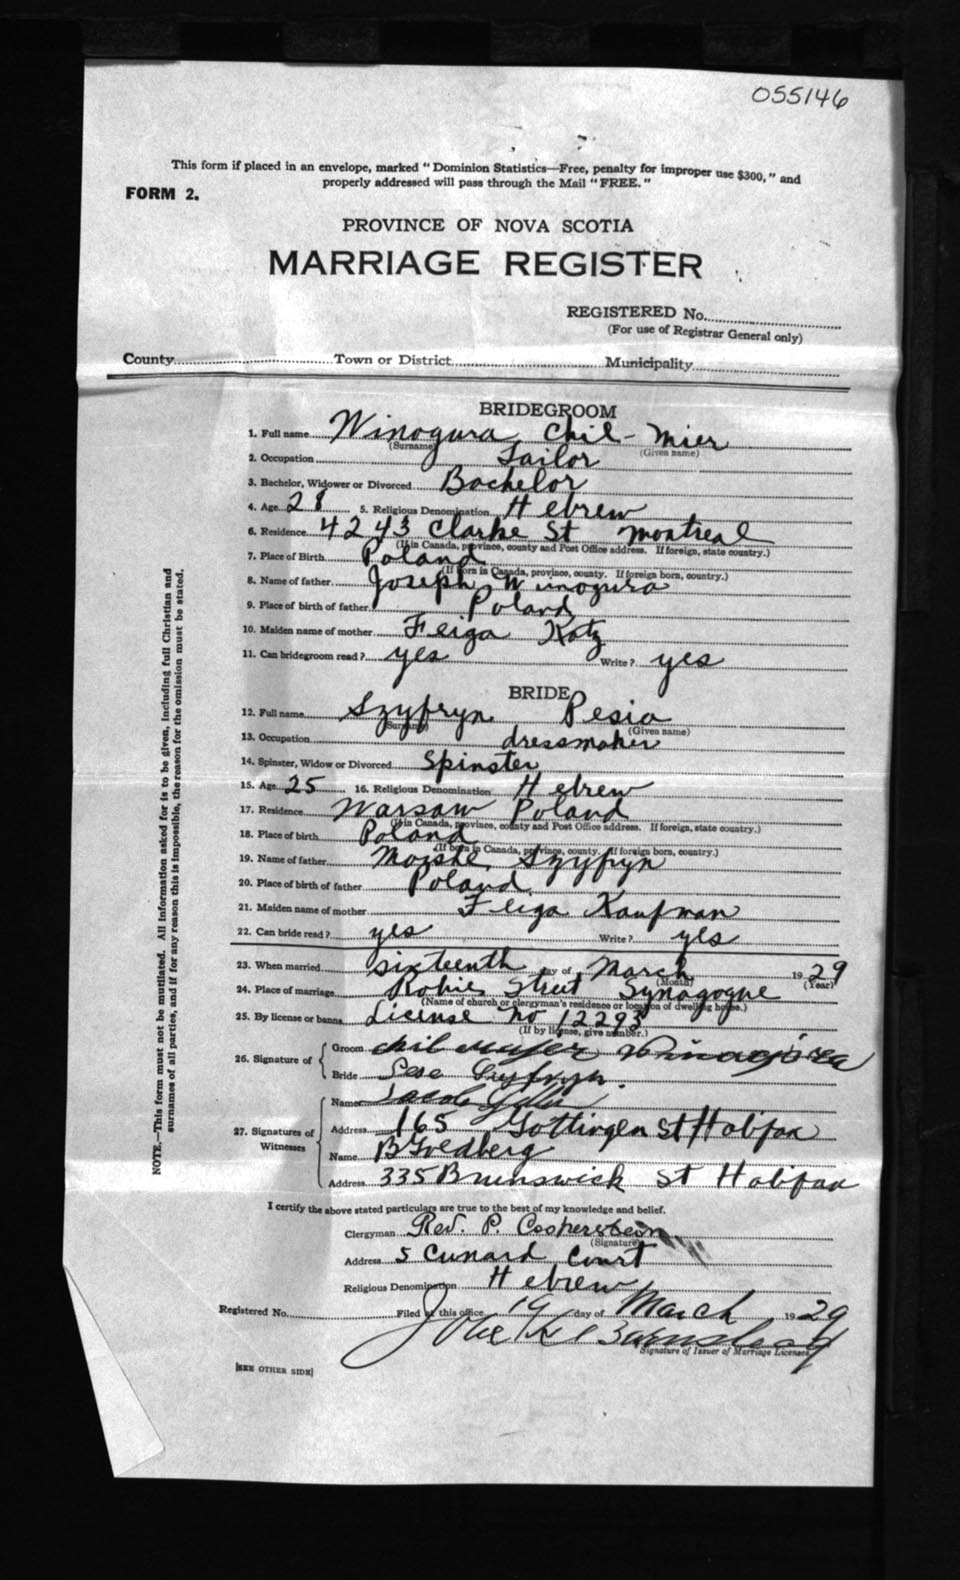 055146
This form if placed in an envelope, marked "Dominion Statistics—Free, penalty for improper use $300," and
properly addressed will pass through the Mail "FREE."
FORM 2.
PROVINCE OF NOVA SCOTIA
MARRIAGE REGISTER
REGISTERED No.
(For use of Registrar General only)
County Town or District Municipality
BRIDEGROOM
1. Full name Winogura Chil-Mier
(Surname) (Given name)
2. Occupation Tailor
3. Bachelor, Widower or Divorced Bachelor
4. Age 28 5. Religious Denomination Hebrew
6. Residence 4243 Clarke St Montreal
(If in Canada, province, county and Post Office address. If foreign, state country.)
7. Place of Birth Poland
(If born in Canada, province, county. If foreign born, country.)
8. Name of father Joseph Winogura
9. Place of birth of father Poland
10. Maiden name of mother Feiga Katz
11. Can bridegroom read? yes Write? yes
BRIDE
12. Full name Szyfryn Pesia
(Surname) (Given name)
13. Occupation dressmaker
14. Spinster, Widow or Divorced Spinster
15. Age 25 16. Religious Denomination Hebrew
17. Residence Warsaw Poland
(If in Canada, province, county and Post Office address. If foreign, state country.)
18. Place of birth Poland
(If born in Canada, province, county. If foreign born, country.)
19. Name of father Moishe Szyfryn
20. Place of birth of father Poland
21. Maiden name of mother Feiga Kaufman
22. Can bride read? yes Write? yes
23. When married sixteenth day of March 1929
(Month) (Year)
24. Place of marriage Robie Street Synagogue
(Name of church or clergyman's residence or location of dwelling house.)
25. By license or banns License No 12293
(If by license, give number.)
26. Signature of Groom
Bride
27. Signatures of Witnesses Name Jacob
Address 165 Gottingen St Halifax
Name B Goldberg
Address 335 Brunswick St Halifax
I certify the above stated particulars are true to the best of my knowledge and belief.
Clergyman Rev. P.
(Signature)
Address 5 Cunard Court
Religious Denomination Hebrew
Registered No. Filed at this office 19 day of March 1929
Barnstead
Signature of Issuer of Marriage Licenses
[SEE OTHER SIDE]
NOTE.—This form must not be mutilated. All information asked for is to be given, including full Christian and
surnames of all parties, and if for any reason this is impossible, the reason for the omission must be stated.